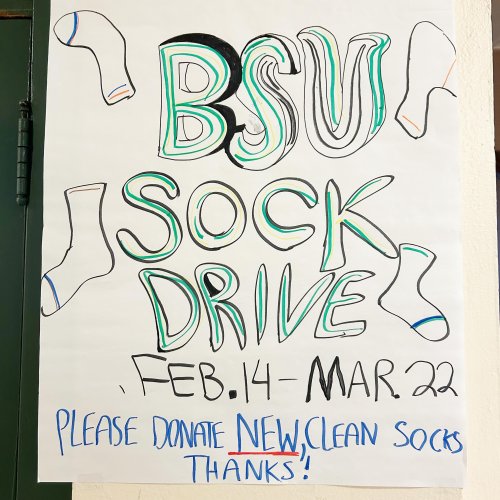 BSU
SOCK
DRIVE
FEB.14-MAR.22
PLEASE DONATE NEW, CLEAN SOCKS
THANKS!